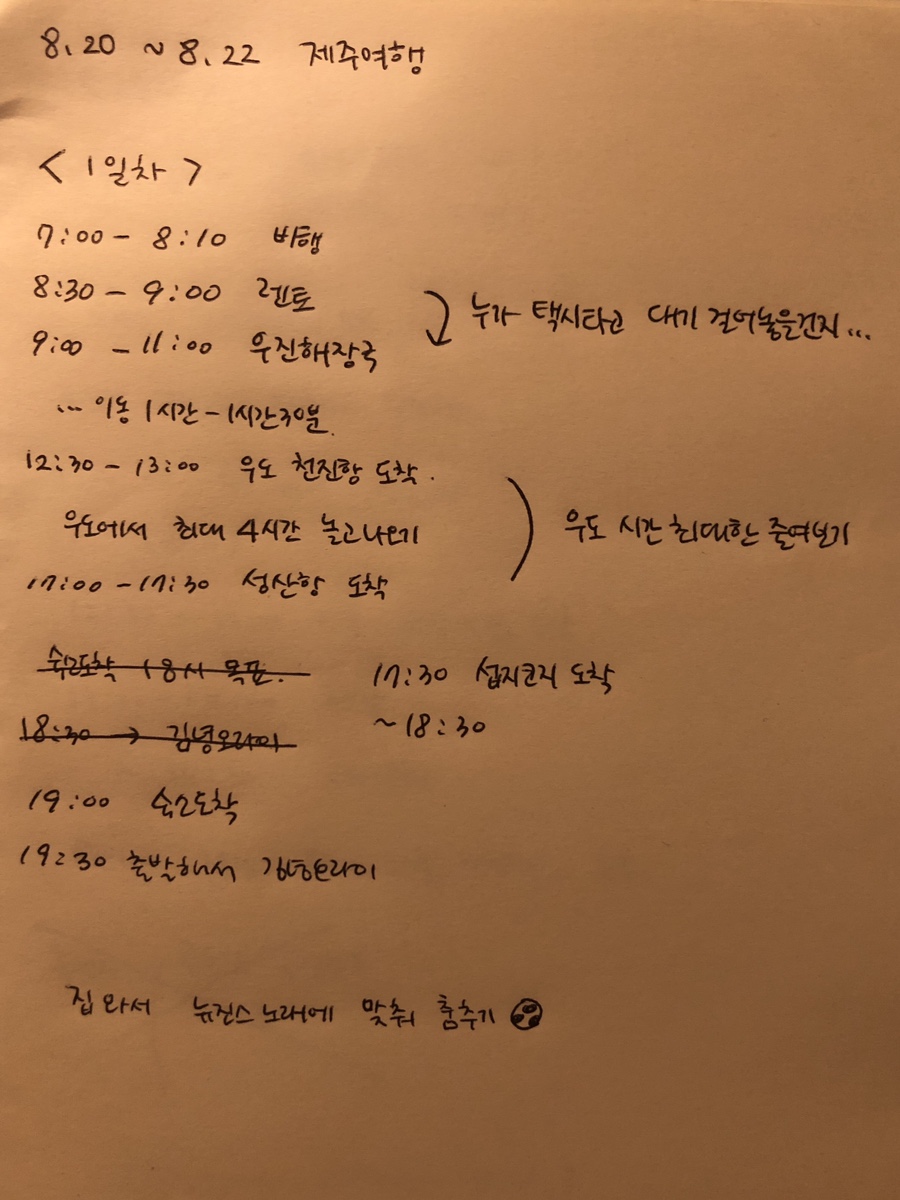 8.20 ~ 8.22 제주여행
< 1일차 >
7:00 - 8:10 비행
8:30 - 9:00 렌트
9:00 - 11:00 우진해장국
누가 택시타고 대기 걸어놓을건지...
... 이동 1시간 - 1시간30분.
12:30 - 13:00 우도 천진항 도착.
우도에서 최대 4시간 놀고나오기
17:00 - 17:30 성산항 도착
우도 시간 최대한 줄여보기
숙소도착 18시 목표.
18:30 → 김녕오라이
17:30 섭지코지 도착
~18:30
19:00 숙소도착
19:30 출발해서 김녕오라이
집 와서 뉴진스 노래에 맞춰 춤추기